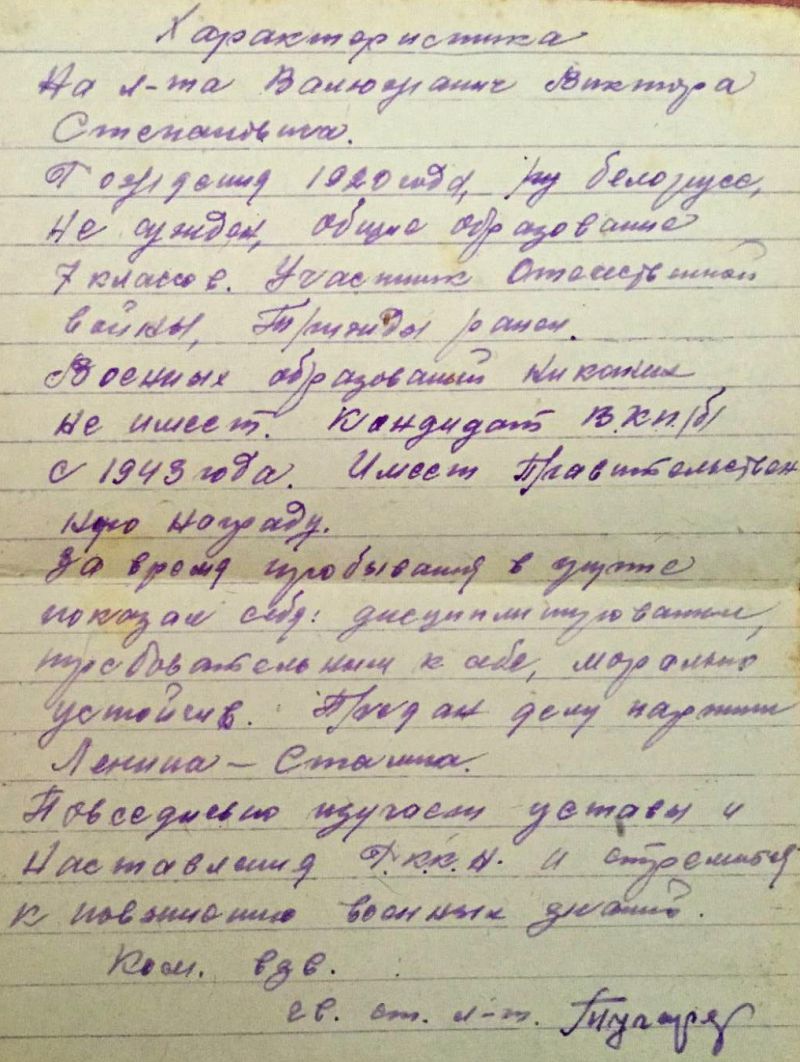 Характеристика
На л-та Валюженич Виктора
Степановича.
Рождения 1920 года, б/п белорусс,
не сужден, общее образование
7 классов. Участник Отечественной
войны, Трижды ранен.
Военных образований никаких
не имеет. Кандидат В.К.П./б/
с 1943 года. Имеет Правительствен
ную награду.
За время пробывания в группе
показал себя: дисциплинированным,
требовательным к себе, морально
устойчив. Предан делу партии
Ленина – Сталина.
Повседневно изучает уставы и
Наставления Р.К.К.А. и стремится
к повышению военных знаний.
Ком. взв.
гв. ст. л-т.